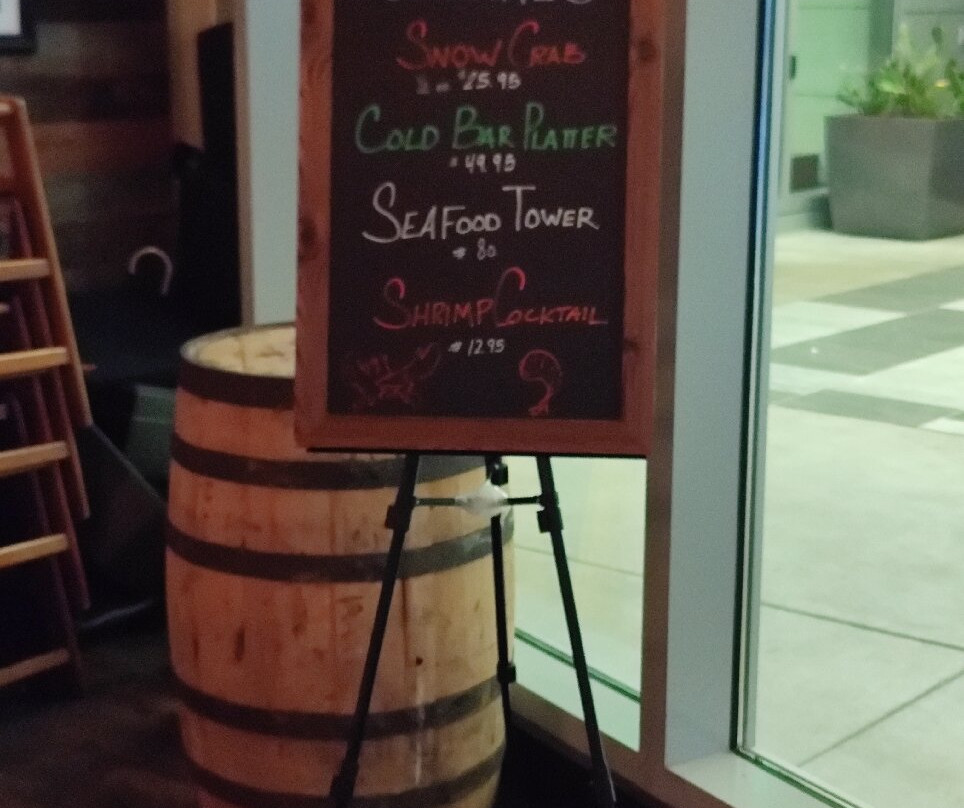 Snow Crab
$25.95
Cold Bar Platter
$49.95
Seafood Tower
$80
Shrimp Cocktail
$12.95